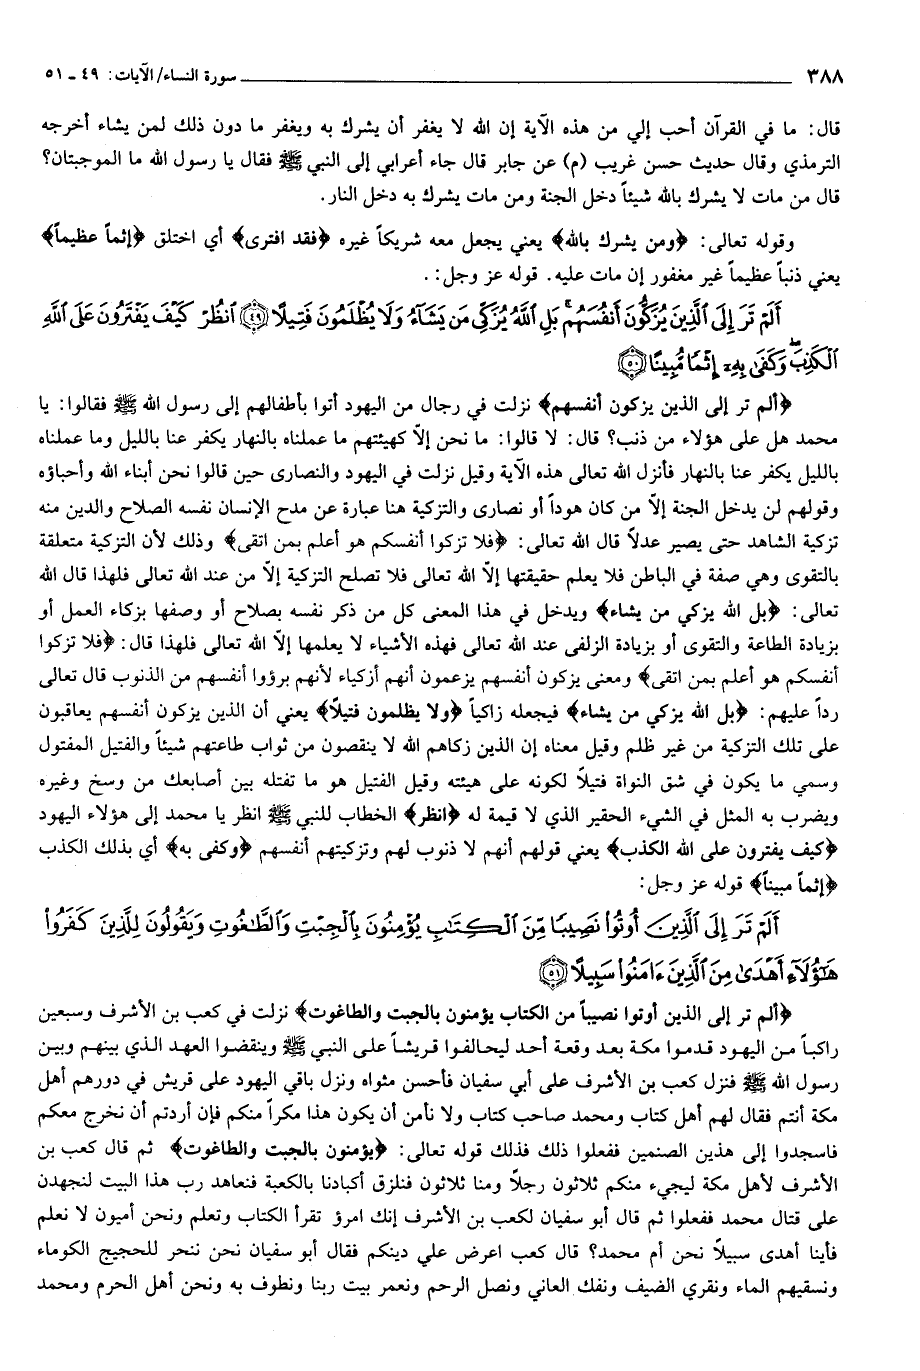 ٣٨٨ سورة النساء/ الآيات: ٤٩ ـ ٥١
قال: ما في القرآن أحب إلي من هذه الآية إن الله لا يغفر أن يشرك به ويغفر ما دون ذلك لمن يشاء أخرجه
الترمذي وقال حديث حسن غريب (م) عن جابر قال جاء أعرابي إلى النبي ﷺ فقال يا رسول الله ما الموجبتان؟
قال من مات لا يشرك بالله شيئاً دخل الجنة ومن مات يشرك به دخل النار.
وقوله تعالى: ﴿ومن يشرك بالله﴾ يعني يجعل معه شريكاً غيره ﴿فقد افترى﴾ أي اختلق ﴿إثماً عظيماً﴾
يعني ذنباً عظيماً غير مغفور إن مات عليه. قوله عز وجل: .
أَلَمْ تَرَ إِلَى ٱلَّذِينَ يُزَكُّونَ أَنفُسَهُمْ بَلِ ٱللَّهُ يُزَكِّى مَن يَشَآءُ وَلَا يُظْلَمُونَ فَتِيلًا ﴿٤٩﴾ ٱنظُرْ كَيْفَ يَفْتَرُونَ عَلَى ٱللَّهِ
ٱلْكَذِبَۖ وَكَفَىٰ بِهِۦٓ إِثْمًا مُّبِينًا ﴿٥٠﴾
﴿ألم تر إلى الذين يزكون أنفسهم﴾ نزلت في رجال من اليهود أتوا بأطفالهم إلى رسول الله ﷺ فقالوا: يا
محمد هل على هؤلاء من ذنب؟ قال: لا قالوا: ما نحن إلاّ كهيئتهم ما عملناه بالنهار يكفر عنا بالليل وما عملناه
بالليل يكفر عنا بالنهار فأنزل الله تعالى هذه الآية وقيل نزلت في اليهود والنصارى حين قالوا نحن أبناء الله وأحباؤه
وقولهم لن يدخل الجنة إلاّ من كان هوداً أو نصارى والتزكية هنا عبارة عن مدح الإنسان نفسه الصلاح والدين منه
تزكية الشاهد حتى يصير عدلاً قال الله تعالى: ﴿فلا تزكوا أنفسكم هو أعلم بمن اتقى﴾ وذلك لأن التزكية متعلقة
بالتقوى وهي صفة في الباطن فلا يعلم حقيقتها إلاّ الله تعالى فلا تصلح التزكية إلاّ من عند الله تعالى فلهذا قال الله
تعالى: ﴿بل الله يزكي من يشاء﴾ ويدخل في هذا المعنى كل من ذكر نفسه بصلاح أو وصفها بزكاء العمل أو
بزيادة الطاعة والتقوى أو بزيادة الزلفى عند الله تعالى فهذه الأشياء لا يعلمها إلاّ الله تعالى فلهذا قال: ﴿فلا تزكوا
أنفسكم هو أعلم بمن اتقى﴾ ومعنى يزكون أنفسهم يزعمون أنهم أزكياء لأنهم برؤوا أنفسهم من الذنوب قال تعالى
رداً عليهم: ﴿بل الله يزكي من يشاء﴾ فيجعله زاكياً ﴿ولا يظلمون فتيلاً﴾ يعني أن الذين يزكون أنفسهم يعاقبون
على تلك التزكية من غير ظلم وقيل معناه إن الذين زكاهم الله لا ينقصون من ثواب طاعتهم شيئاً والفتيل المفتول
وسمي ما يكون في شق النواة فتيلاً لكونه على هيئته وقيل الفتيل هو ما تفتله بين أصابعك من وسخ وغيره
ويضرب به المثل في الشيء الحقير الذي لا قيمة له ﴿انظر﴾ الخطاب للنبي ﷺ انظر يا محمد إلى هؤلاء اليهود
﴿كيف يفترون على الله الكذب﴾ يعني قولهم أنهم لا ذنوب لهم وتزكيتهم أنفسهم ﴿وكفى به﴾ أي بذلك الكذب
﴿إثماً مبيناً﴾ قوله عز وجل:
أَلَمْ تَرَ إِلَى ٱلَّذِينَ أُوتُوا۟ نَصِيبًا مِّنَ ٱلْكِتَٰبِ يُؤْمِنُونَ بِٱلْجِبْتِ وَٱلطَّٰغُوتِ وَيَقُولُونَ لِلَّذِينَ كَفَرُوا۟
هَٰٓؤُلَآءِ أَهْدَىٰ مِنَ ٱلَّذِينَ ءَامَنُوا۟ سَبِيلًا ﴿٥١﴾
﴿ألم تر إلى الذين أوتوا نصيباً من الكتاب يؤمنون بالجبت والطاغوت﴾ نزلت في كعب بن الأشرف وسبعين
راكباً من اليهود قدموا مكة بعد وقعة أحد ليحالفوا قريشاً على النبي ﷺ وينقضوا العهد الذي بينهم وبين
رسول الله ﷺ فنزل كعب بن الأشرف على أبي سفيان فأحسن مثواه ونزل باقي اليهود على قريش في دورهم أهل
مكة أنتم فقال لهم أهل كتاب ومحمد صاحب كتاب ولا نأمن أن يكون هذا مكراً منكم فإن أردتم أن نخرج معكم
فاسجدوا إلى هذين الصنمين ففعلوا ذلك فذلك قوله تعالى: ﴿يؤمنون بالجبت والطاغوت﴾ ثم قال كعب بن
الأشرف لأهل مكة ليجيء منكم ثلاثون رجلاً ومنا ثلاثون فنلزق أكبادنا بالكعبة فنعاهد رب هذا البيت لنجهدن
على قتال محمد ففعلوا ثم قال أبو سفيان لكعب بن الأشرف إنك امرؤ تقرأ الكتاب وتعلم ونحن أميون لا نعلم
فأينا أهدى سبيلاً نحن أم محمد؟ قال كعب اعرض علي دينكم فقال أبو سفيان نحن ننحر للحجيج الكوماء
ونسقيهم الماء ونقري الضيف ونفك العاني ونصل الرحم ونعمر بيت ربنا ونطوف به ونحن أهل الحرم ومحمد